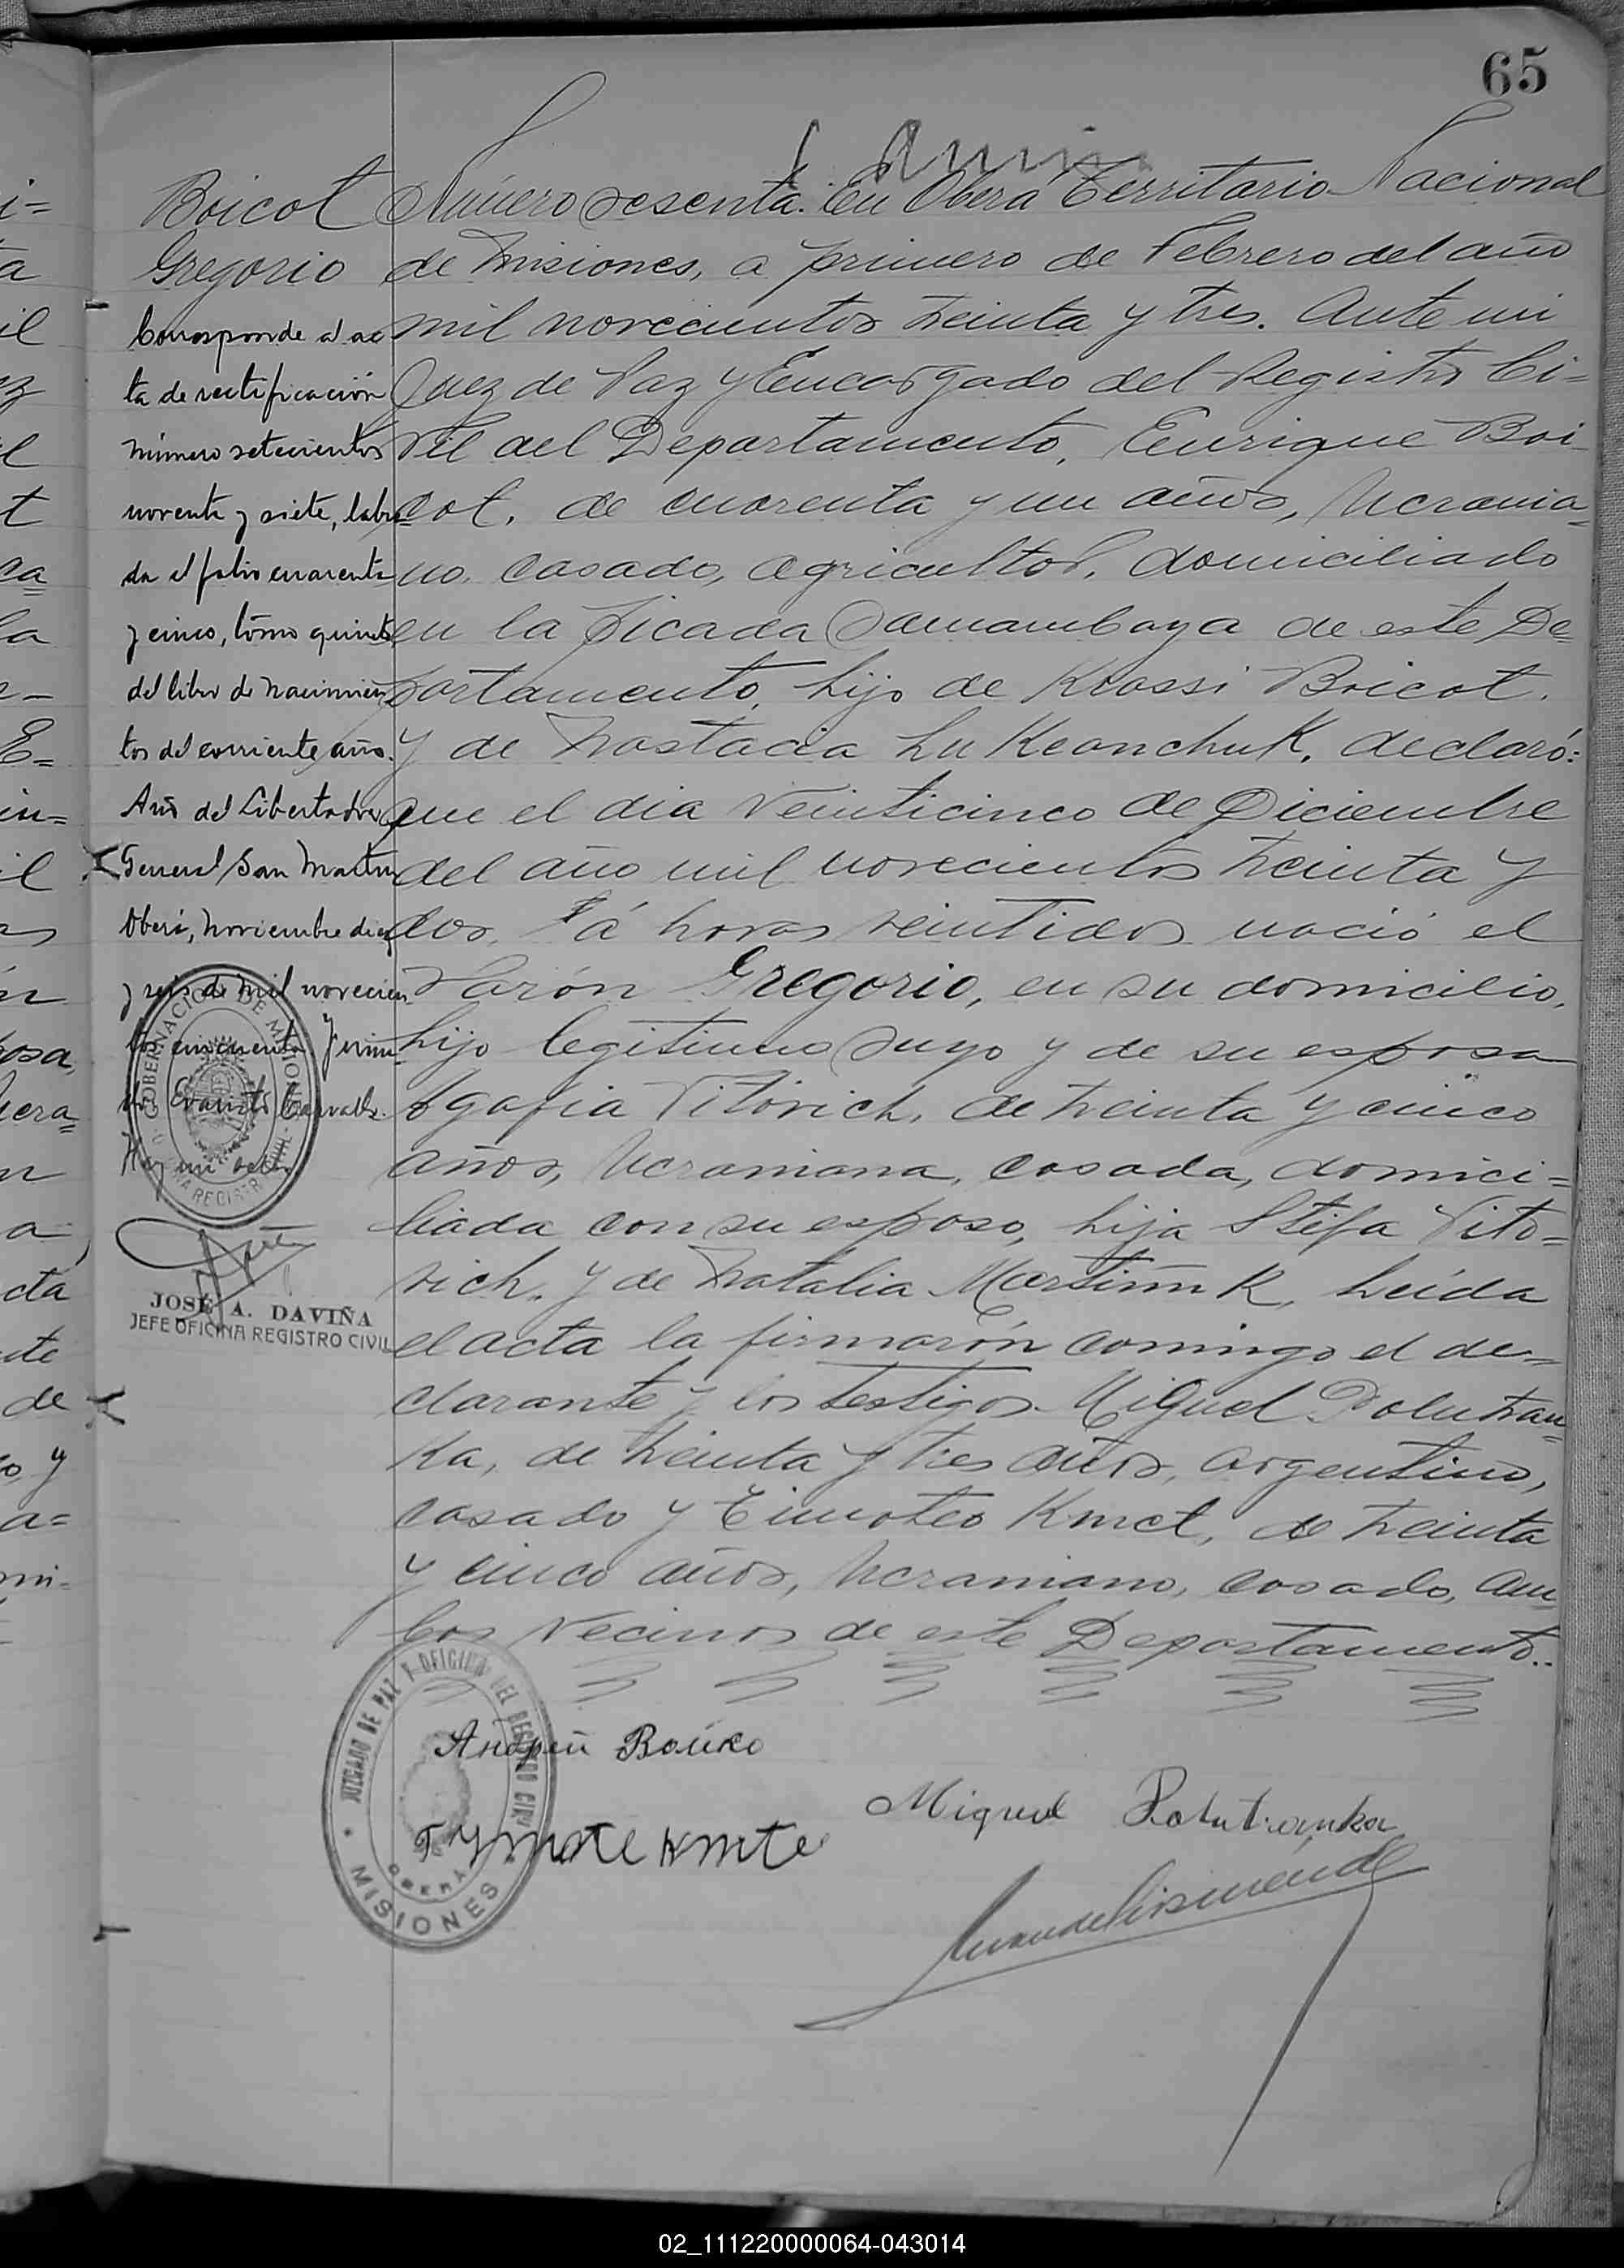 65
Boicot
Gregorio
Corresponde al ac
ta de rectificación
número setecientos
noventa y siete, labra
da al folio cuarenta
y cinco, tomo quinto
del libro de Nacimien
tos del corriente año.
Año del Libertador
General San Martín
Oberá, noviembre diez
y seis de mil novecien
tos cincuenta. Firma
do: Evaristo Carvallo.
Hay un sello.
GOBERNACION DE MISIONES
JOSÉ A. DAVIÑA
JEFE OFICINA REGISTRO CIVIL
Número sesenta. En Oberá Territorio Nacional
de Misiones, a primero de Febrero del año
mil novecientos treinta y tres. Ante mi
Juez de Paz y Encargado del Registro Ci=
vil del Departamento, Enrique Boi-
cot, de cuarenta y un años, Ucrania=
no, casado, agricultor, domiciliado
en la Picada Samambaya de este De=
partamento, hijo de Krassi Boicot,
y de Nastacia Lukeanchuk, declaró:
que el dia veinticinco de Diciembre
del año mil novecientos treinta y
dos, á horas veintidos nació el
varón Gregorio, en su domicilio,
hijo legitimo suyo y de su esposa
Agafia Vitovich, de treinta y cinco
años, Ucraniana, casada, domici=
liada con su esposo, hija Stefa Vito=
vich, y de Natalia Leída
el acta la firmarón conmigo el de=
clarante y los testigos Miguel Polutran=
ka, de treinta y tres años, argentino,
casado y Timoteo Kmet, de treinta
y cinco años, Ucraniano, casado, am
bos vecinos de este Departamento..
JUZGADO DE PAZ Y OFICINA DEL REGISTRO CIVIL
OBERÁ
MISIONES
Андрей Бойко
Miguel Polutranka
02_111220000064-043014